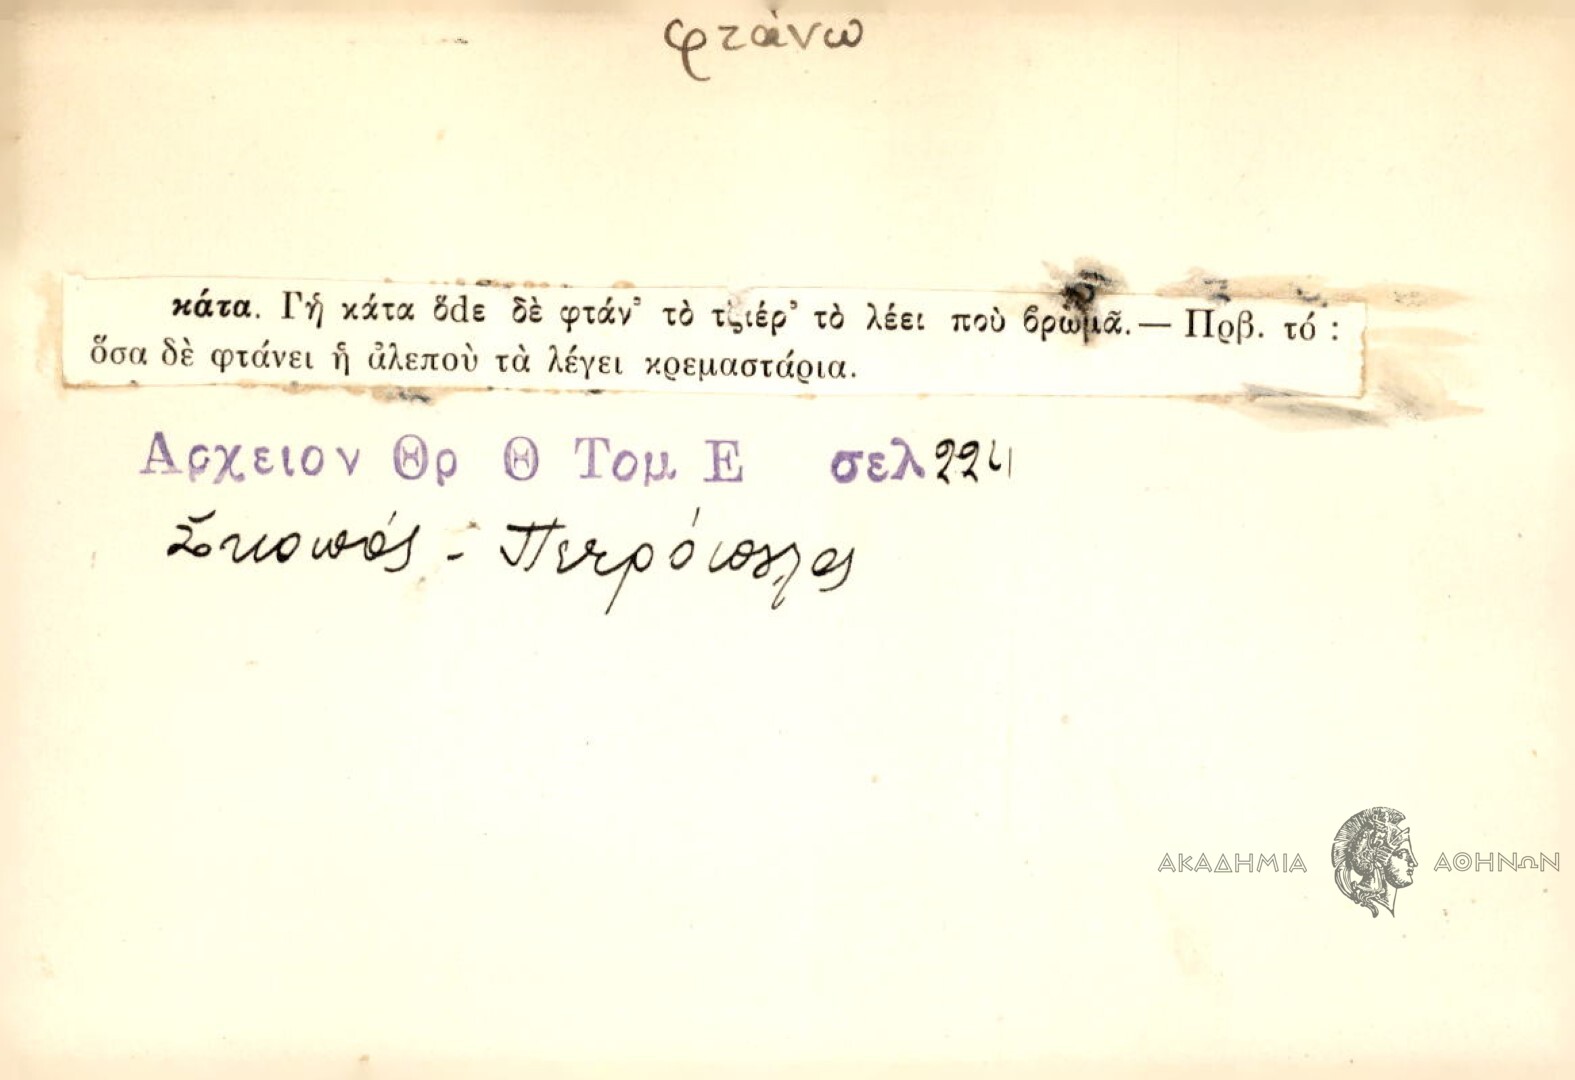 φτάνω
κάτα. Γἡ κάτα ὅdε δὲ φτάν᾿ τὸ τζιέρ᾿ τὸ λέει ποὺ βρωμᾶ.— Πρβ. τό :
ὅσα δὲ φτάνει ἡ ἀλεποὺ τὰ λέγει κρεμαστάρια.
Αρχειον Θρ Θ Τομ Ε σελ 224
Σκοπός - Πετρόπολος
ΑΚΑΔΗΜΙΑ ΑΘΗΝΩΝ